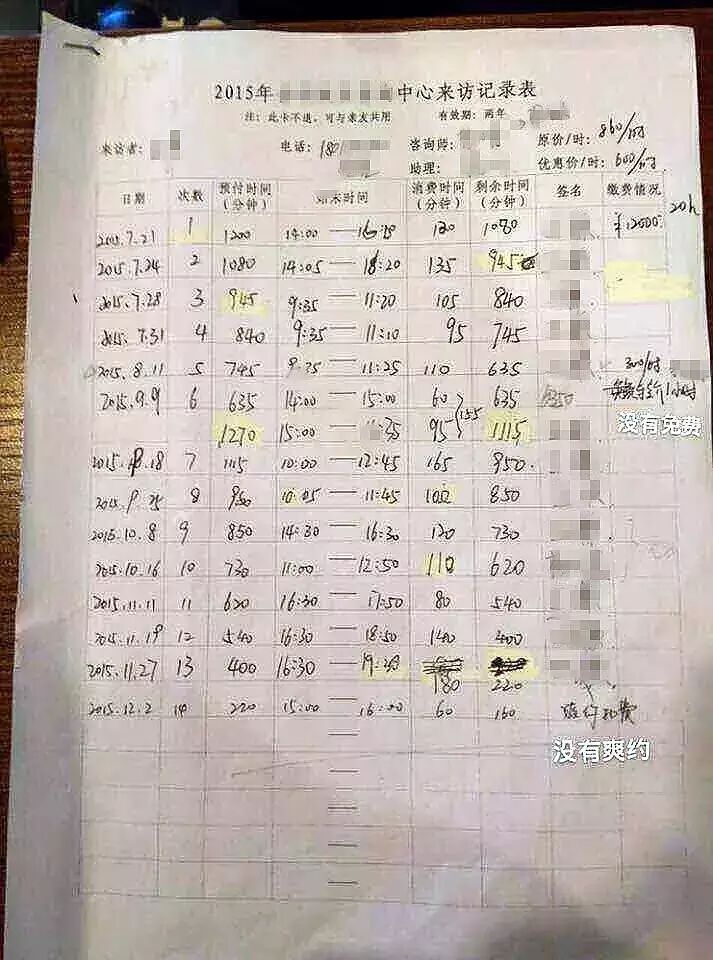 2015年 中心来访记录表
注：此卡不退，可与亲友共用 有效期：两年
来访者： 电话：180 咨询师： 原价/时：860/时
助理： 优惠价/时：600/时
日期 次数 预付时间（分钟） 始末时间 消费时间（分钟） 剩余时间（分钟） 签名 缴费情况
2015.7.21 1 1200 14:00 — 120 1080 ¥12000 20h
2015.7.24 2 1080 14:05 — 16:20 135 945
2015.7.28 3 945 9:35 — 11:20 105 840
2015.7.31 4 840 9:35 — 11:10 95 745
2015.8.11 5 745 9:35 — 11:25 110 635
2015.9.9 6 635 14:00 — 15:00 60 635
155
1270 15:00 — 95 1115
没有免费
2015.9.18 7 1115 10:00 — 12:45 165 950
2015.9.25 8 950 10:05 — 11:45 100 850
2015.10.8 9 850 14:30 — 16:30 120 730
2015.10.16 10 730 11:00 — 12:50 110 620
2015.11.11 11 620 16:30 — 17:50 80 540
2015.11.19 12 540 16:30 — 18:50 140 400
2015.11.27 13 400 16:30 — 19:30
180 220
2015.12.2 14 220 15:00 — 16:00 60 160 爽约扣费
没有爽约